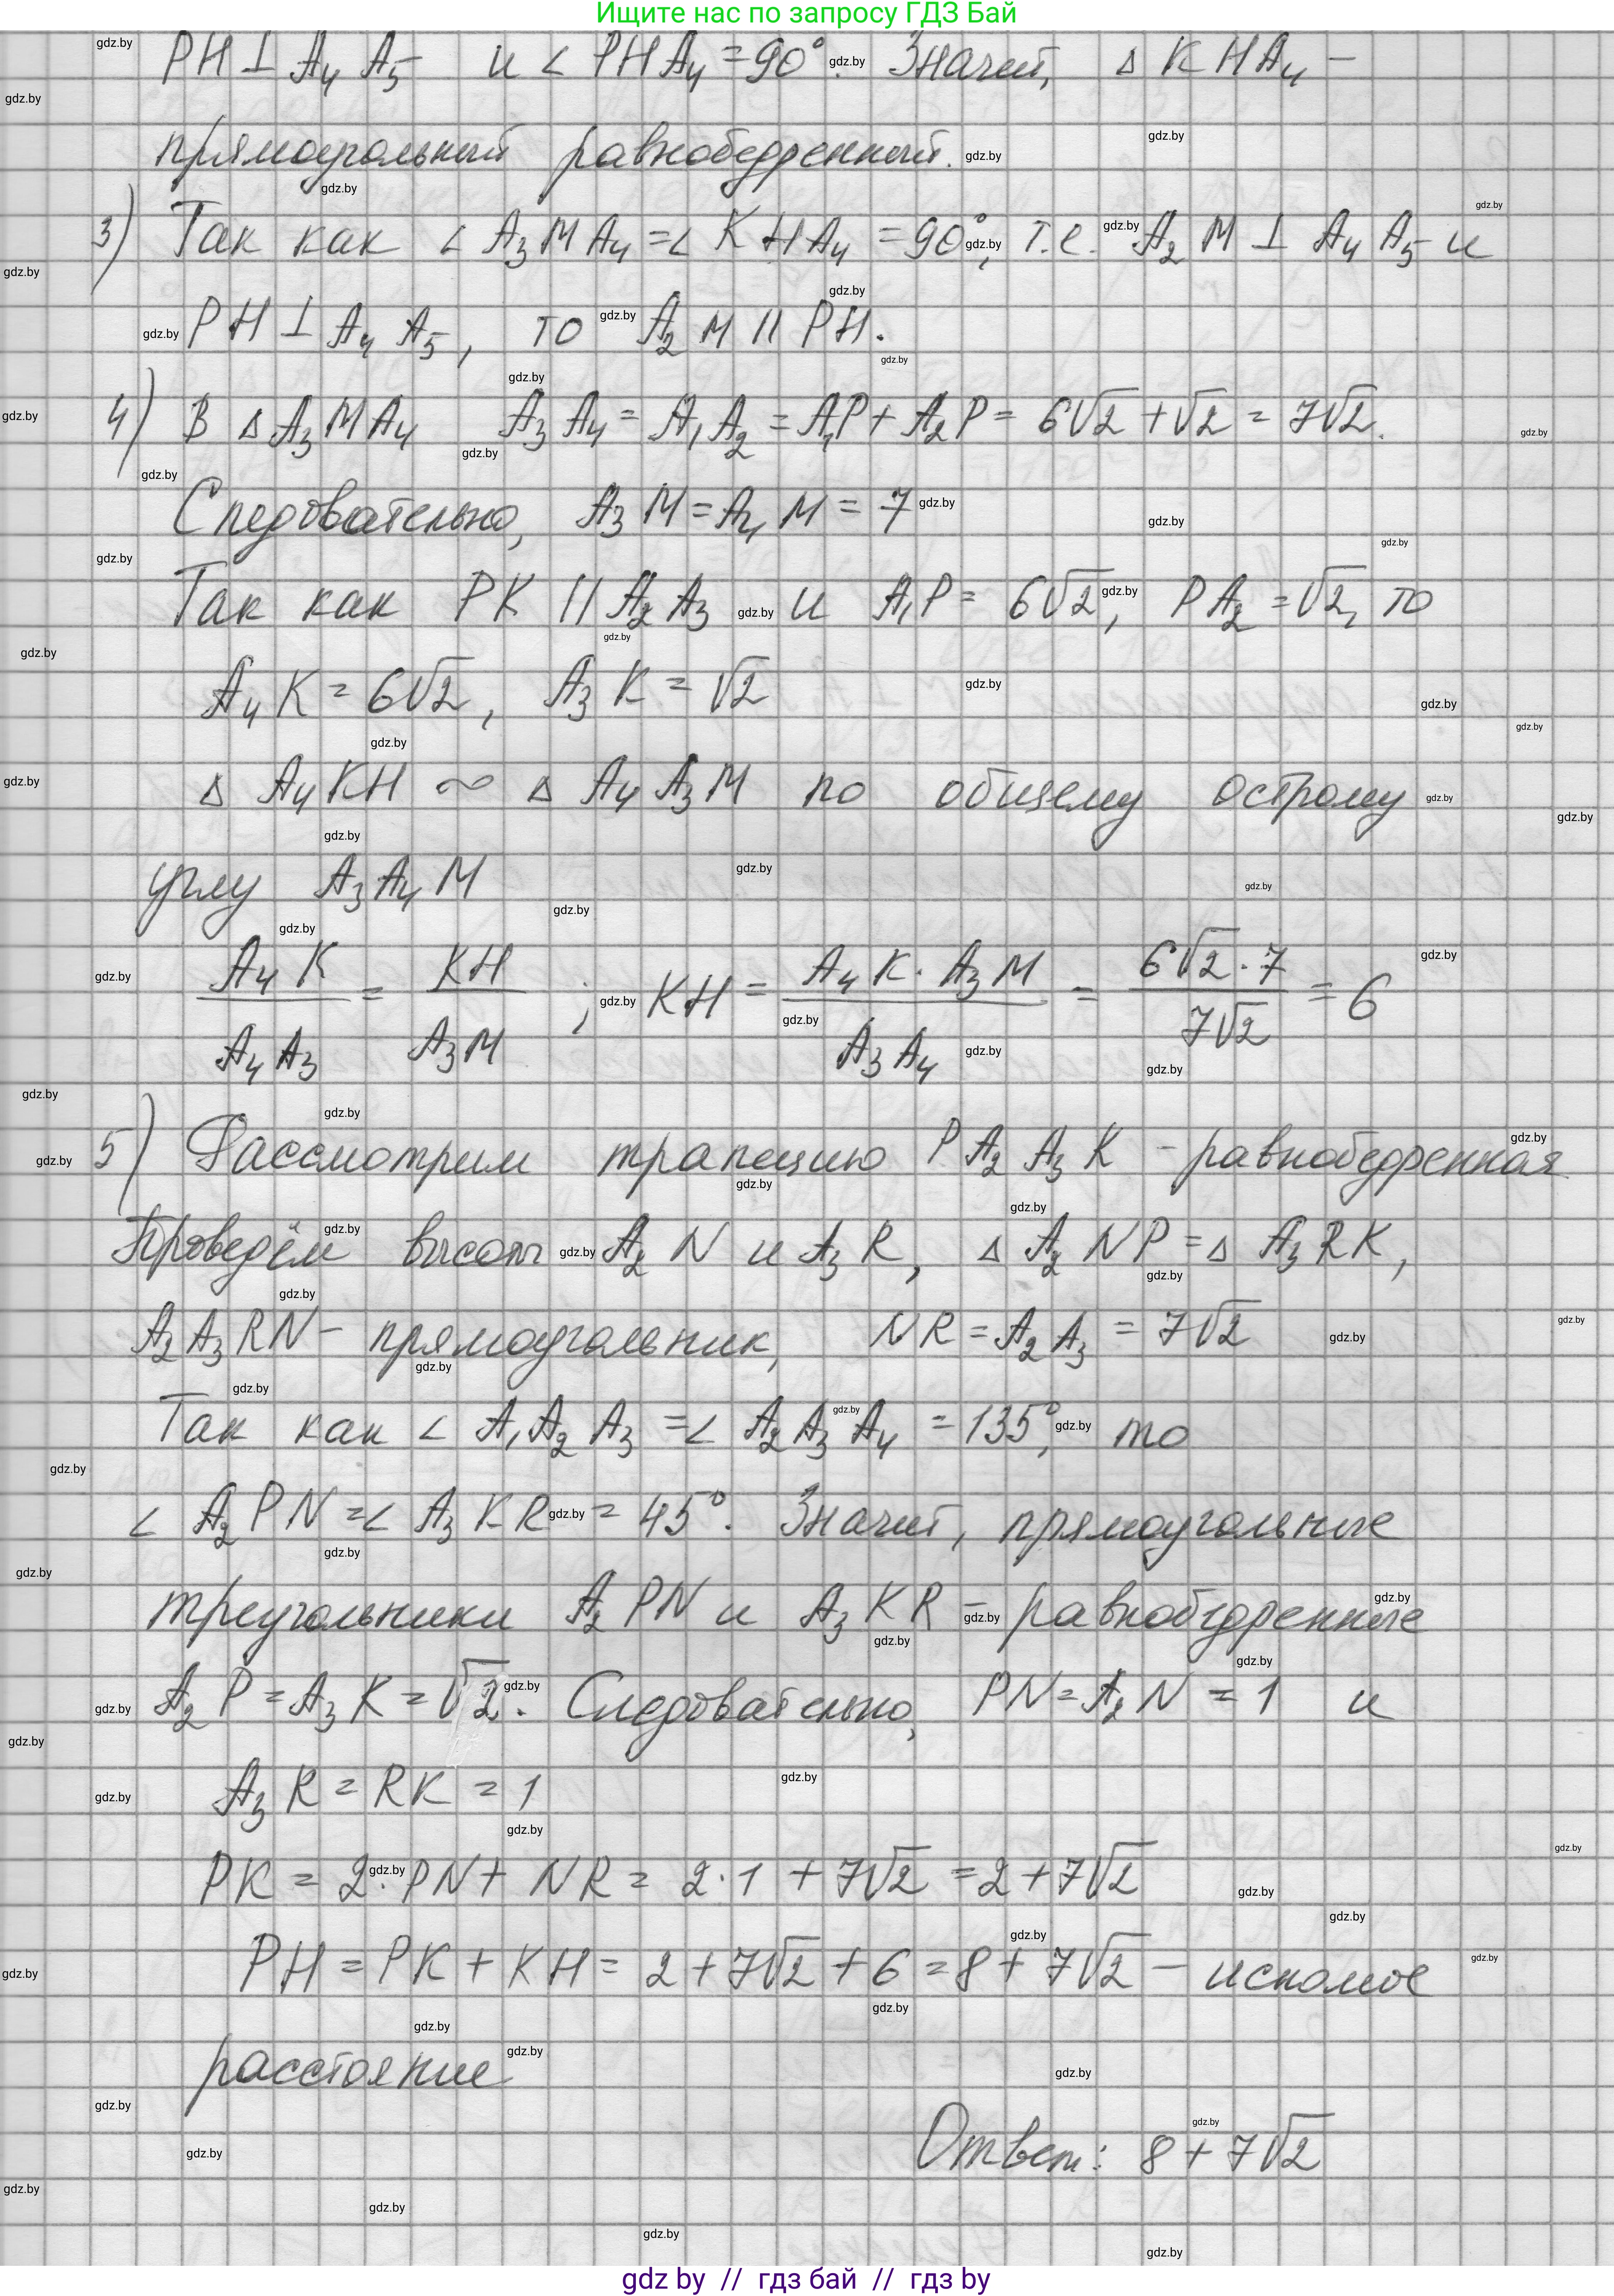 Ищите нас по запросу ГДЗ Бай
PH ⊥ A₄A₅ и ∠PHA₄ = 90°. Значит, ΔKHA₄ –
прямоугольный равнобедренный.
3) Так как ∠A₃MA₄ = ∠KHA₄ = 90°, т.е. A₂M ⊥ A₄A₅ и
PH ⊥ A₄A₅, то A₂M || PH.
4) В ΔA₃MA₄ A₃A₄ = A₁A₂ = A₁P + A₂P = 6√2 + √2 = 7√2.
Следовательно, A₃M = A₄M = 7
Так как PK || A₂A₃ и A₁P = 6√2, PA₂ = √2, то
A₄K = 6√2, A₃K = √2
Δ A₄KH ∾ Δ A₄A₃M по общему острому
углу A₃A₄M
A₄K/A₄A₃ = KH/A₃M ; KH = A₄K · A₃M/A₃A₄ = 6√2 · 7/7√2 = 6
5) Рассмотрим трапецию PA₂A₃K – равнобедренная
Проведём высоты A₂N и A₃R, Δ A₂NP = Δ A₃RK,
A₂A₃RN – прямоугольник, NR = A₂A₃ = 7√2
Так как ∠A₁A₂A₃ = ∠A₂A₃A₄ = 135°, то
∠A₂PN = ∠A₃KR = 45°. Значит, прямоугольные
треугольники A₂PN и A₃KR – равнобедренные
A₂P = A₃K = √2. Следовательно, PN = A₂N = 1 и
A₃R = RK = 1
PK = 2 · PN + NR = 2 · 1 + 7√2 = 2 + 7√2
PH = PK + KH = 2 + 7√2 + 6 = 8 + 7√2 – искомое
расстояние
Ответ: 8 + 7√2
gdz by // гдз бай // гдз by